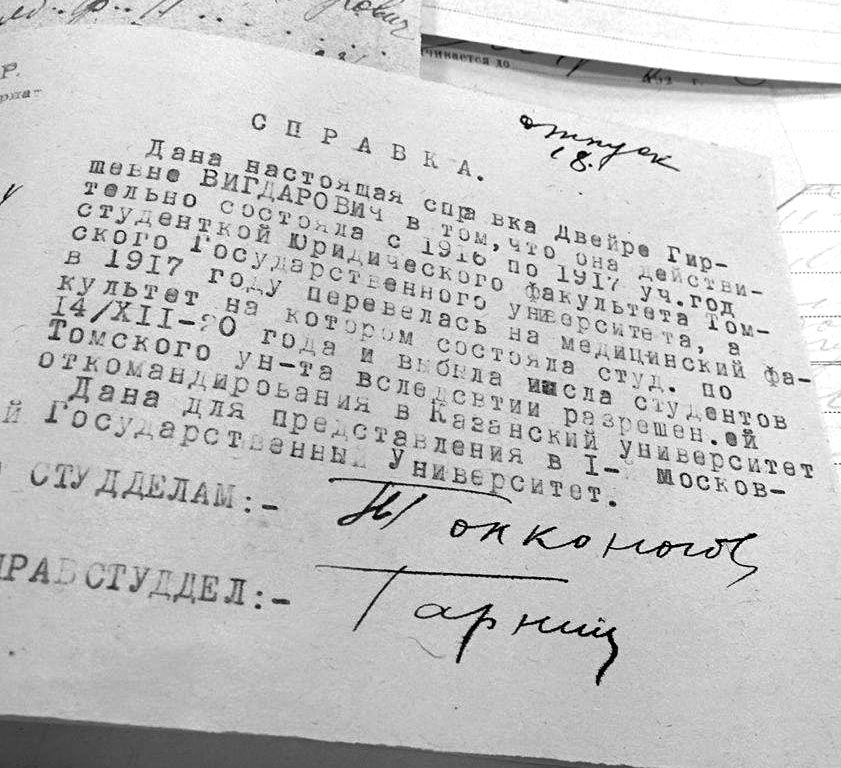 ович
чивается до
Р.
отпуск
18.
СПРАВКА.
Дана настоящая справка Двейре Гир-
шевне ВИГДАРОВИЧ в том, что она действи-
тельно состояла с 1916 по 1917 уч.год
студенткой Юридического факультета Том-
ского Государственного университета, а
в 1917 году перевелась на медицинский фа-
культет на котором состояла студ. по
14/XII-20 года и выбыла из числа студентов
Томского ун-та вследсвтии разрешен.ей
откомандирования в Казанский университет
Дана для представления в I-й Москов-
й Государственный Университет.
СТУДДЕЛАМ:- Тонконогов
ПРАВСТУДДЕЛ:- Гарниц